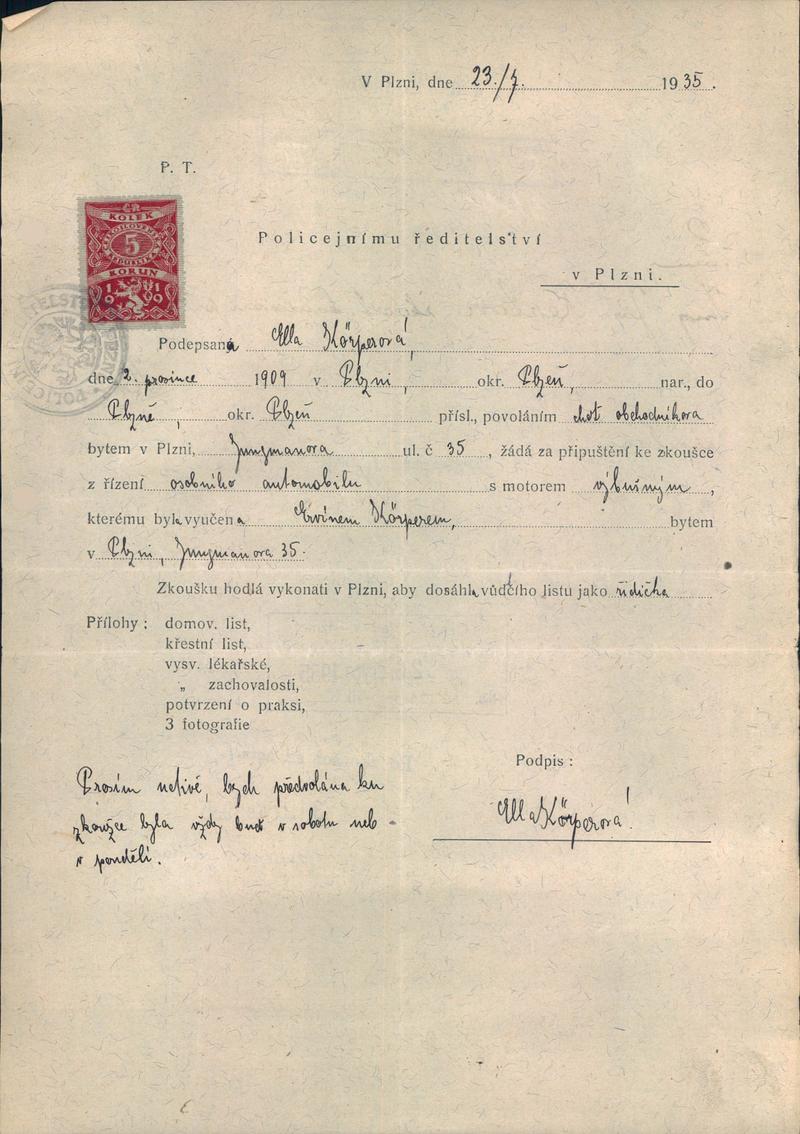 V Plzni, dne 23./7. 1935.
P. T.
ČR
KOLEK
5
KORUN
1919
Policejnímu ředitelství
v Plzni.
Podepsaná Ella Körperová,
dne 2. prosince 1909 v Plzni, okr. Plzeň, nar., do
Plzně, okr. Plzeň přísl., povoláním choť obchodníkova
bytem v Plzni, Jungmanova ul. č 35, žádá za připuštění ke zkoušce
z řízení osobního automobilu s motorem výbušným,
kterému byla vyučena Ervínem Körperem, bytem
v Plzni, Jungmanova 35.
Zkoušku hodlá vykonati v Plzni, aby dosáhla vůdčího listu jako řidička
Přílohy: domov. list,
křestní list,
vysv. lékařské,
„ zachovalosti,
potvrzení o praksi,
3 fotografie
Podpis:
Prosím uctivě, bych předvolána ku
zkoušce byla vždy buď v sobotu neb
v pondělí.
Ella Körperová